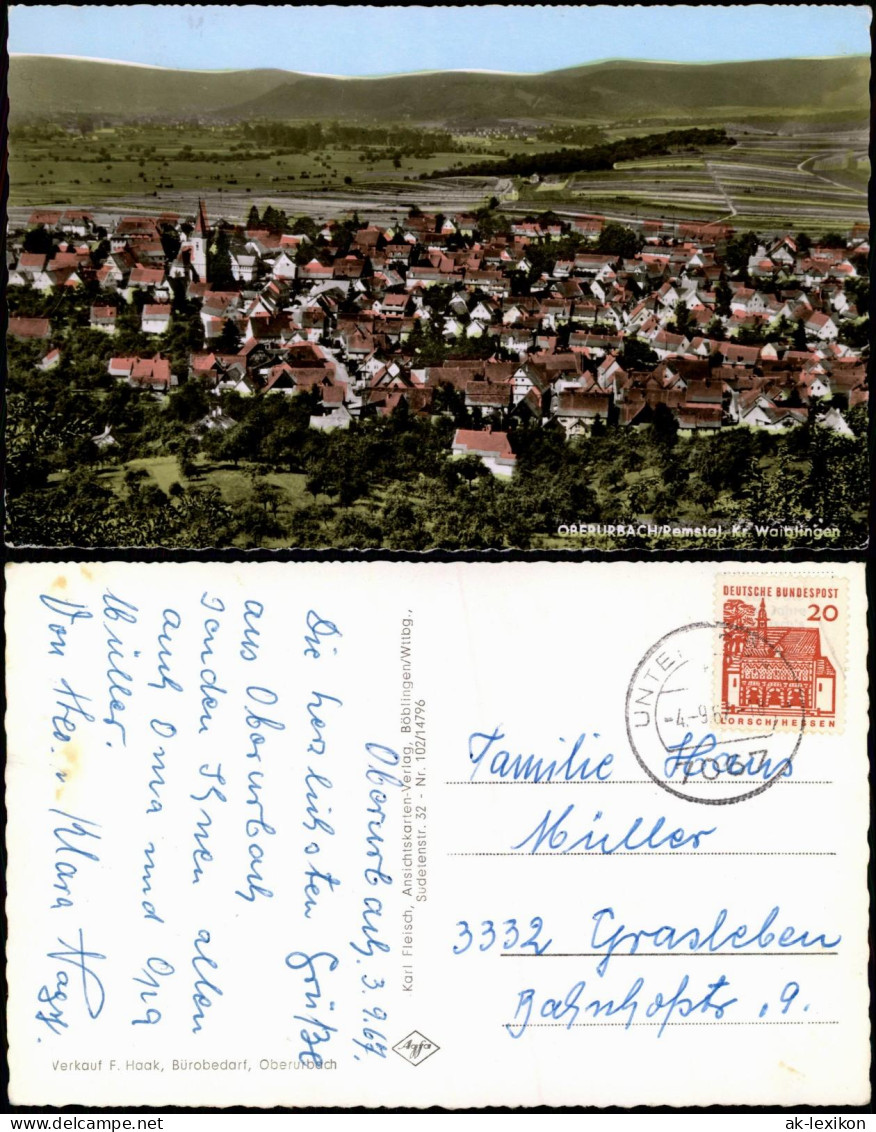 OBERURBACH/Remstal, Kr. Waiblingen
Oberurbach, 3.9.67.
Die herzlichsten Grüße
aus Oberurbach
senden Ihnen allen
auch Oma und Opa
Müller.
Von Heo. u Klara
Verkauf F. Haak, Bürobedarf, Oberurbach
Karl Fleisch, Ansichtskarten-Verlag, Böblingen/Wttbg.,
Sudetenstr. 32 - Nr. 102/14796
Agfa
DEUTSCHE BUNDESPOST
20
LORSCH/HESSEN
UNTE
-4.-9.6
7067
Familie Hans
Müller
3332 Grasleben
Bahnhofstr. 9.
ak-lexikon.com